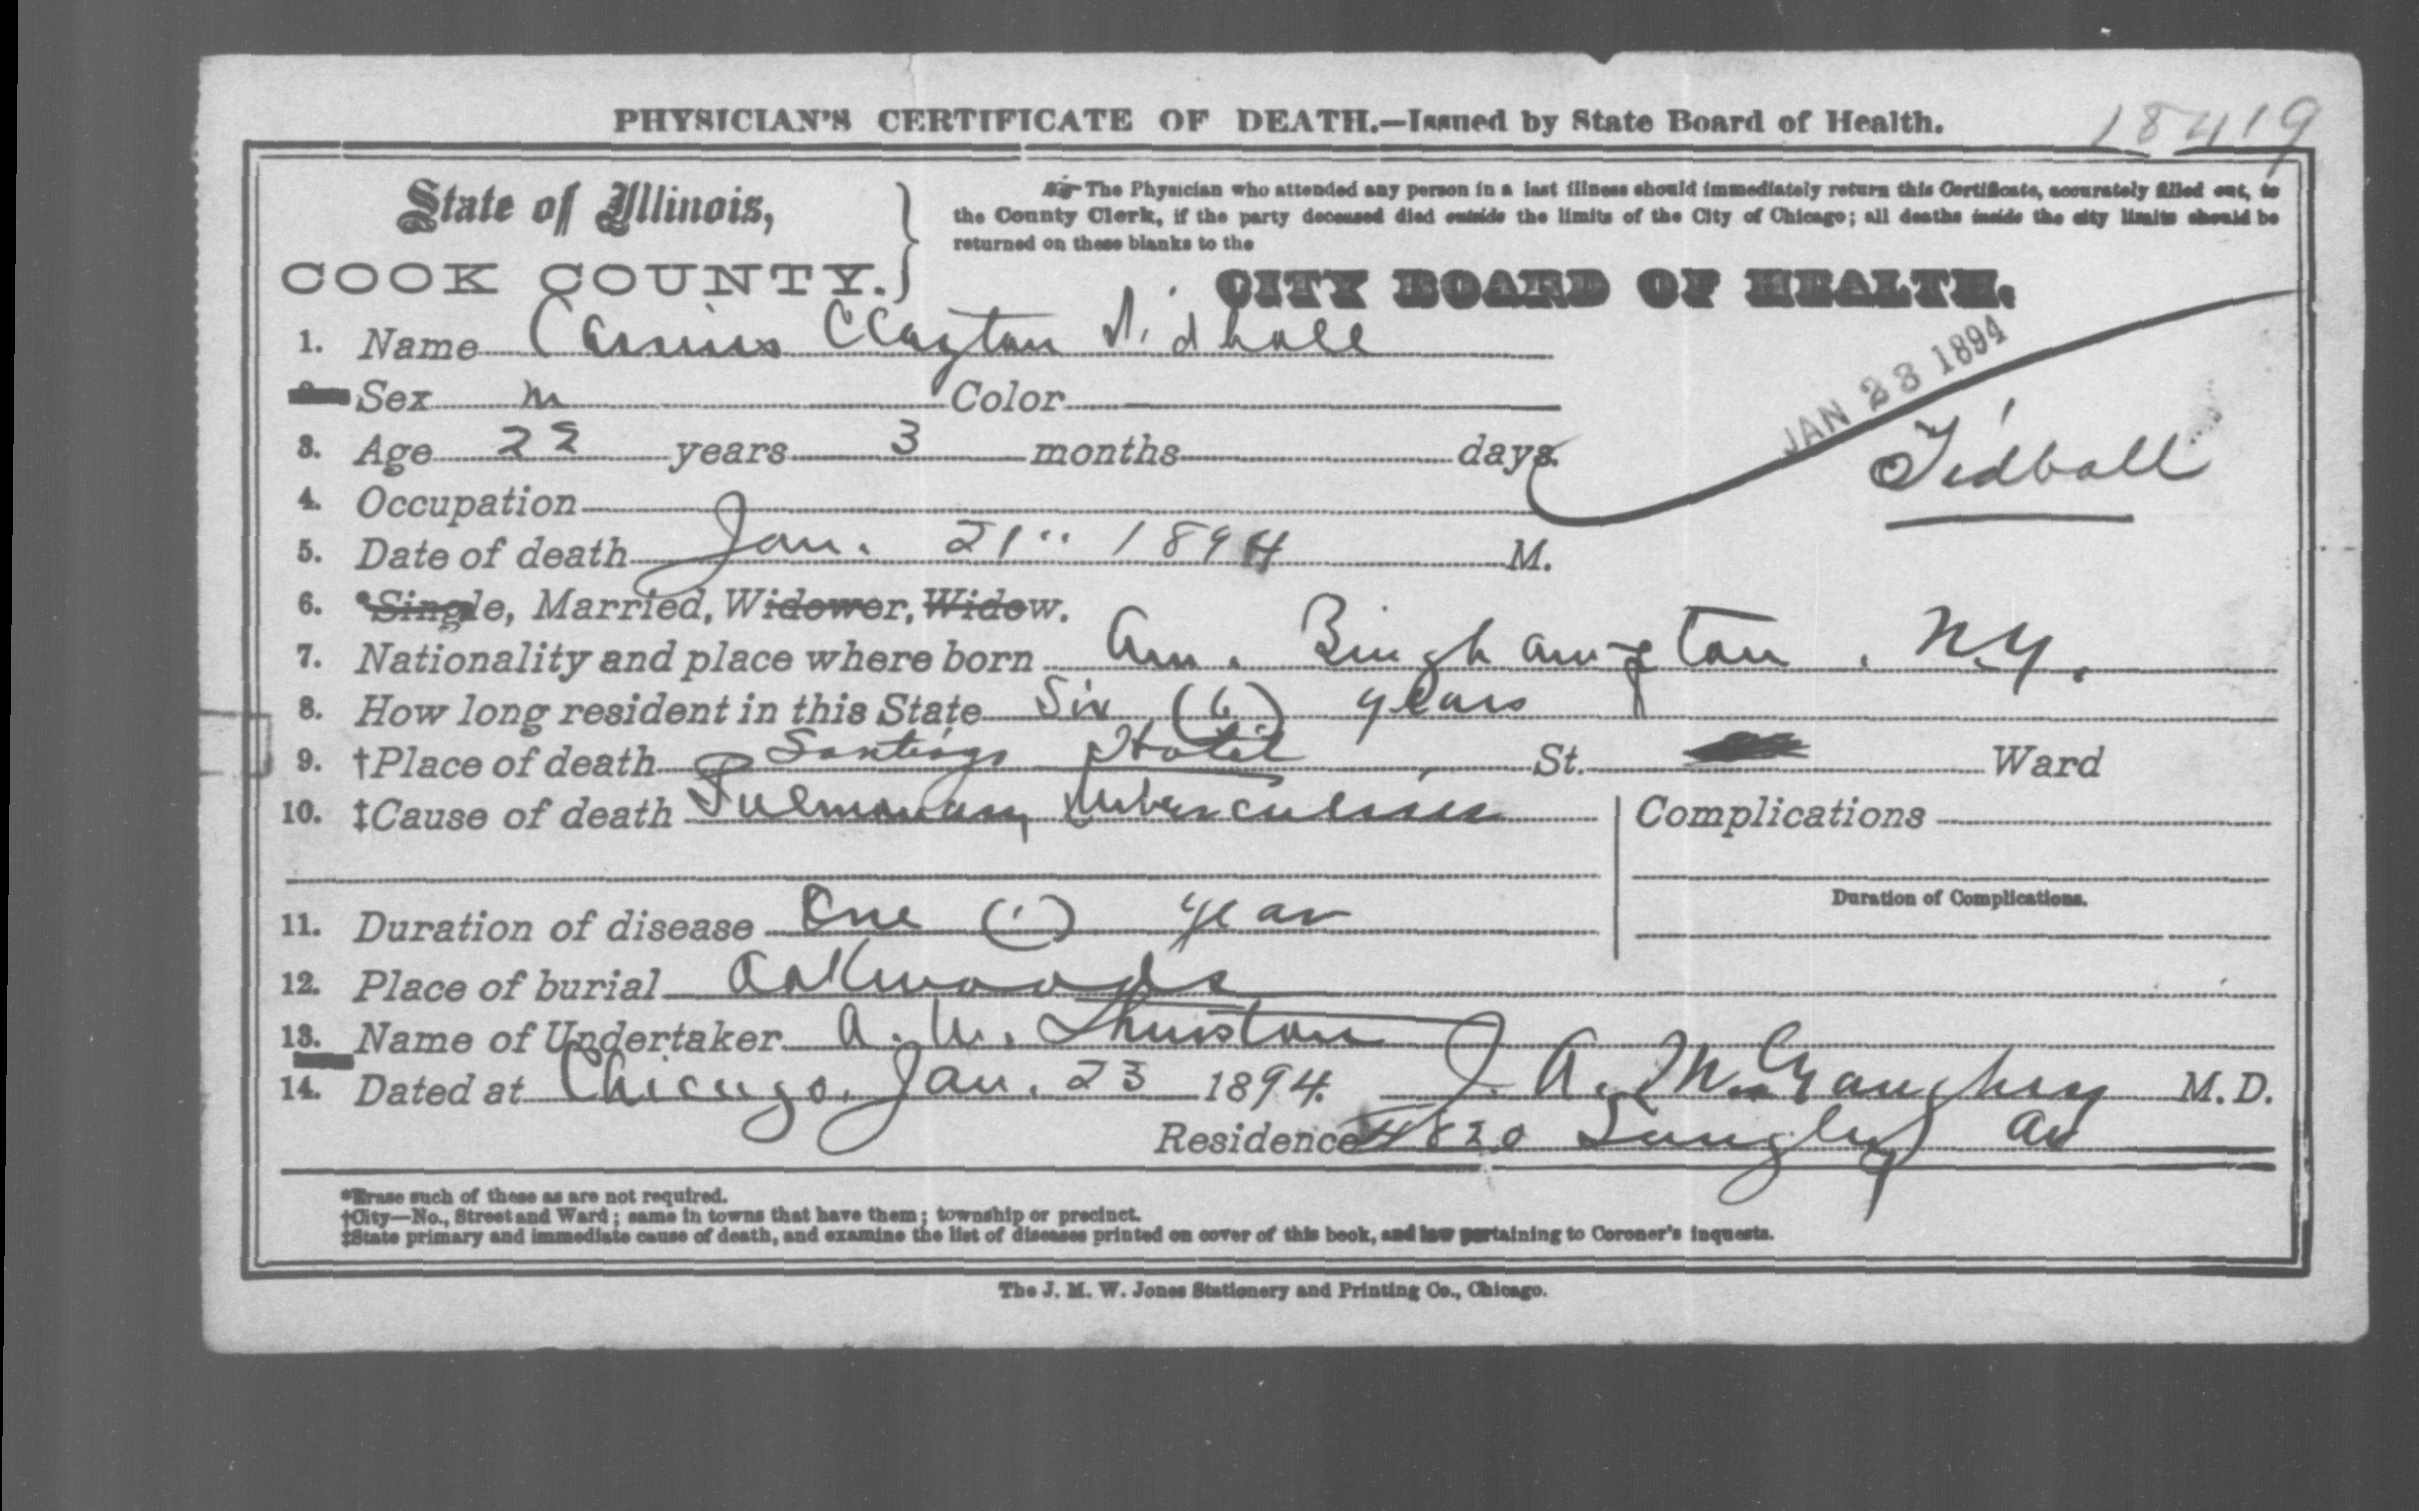 PHYSICIAN'S CERTIFICATE OF DEATH.—Issued by State Board of Health.
18419
State of Illinois,
COOK COUNTY.
The Physician who attended any person in a last illness should immediately return this Certificate, accurately filled out, to
the County Clerk, if the party deceased died outside the limits of the City of Chicago; all deaths inside the city limits should be
returned on these blanks to the
CITY BOARD OF HEALTH.
1. Name Cassius Clayton Tidball
JAN 23 1894
Tidball
Sex m Color
3. Age 22 years 3 months days.
4. Occupation
5. Date of death Jan. 21" 1894 M.
6. *Single, Married, Widower, Widow.
7. Nationality and place where born Am. Binghampton. N.Y.
8. How long resident in this State Six (6) years
9. †Place of death Hotel St. Ward
10. ‡Cause of death Pulmonary tuberculosis
Complications
Duration of Complications.
11. Duration of disease One (1) year
12. Place of burial Oakwoods
13. Name of Undertaker A. W. Thurston
14. Dated at Chicago, Jan. 23 1894. J. A. McGaughey M.D.
Residence 4820 Langley Av
*Erase such of these as are not required.
†City—No., Street and Ward; same in towns that have them; township or precinct.
‡State primary and immediate cause of death, and examine the list of diseases printed on cover of this book, and law pertaining to Coroner's inquests.
The J. M. W. Jones Stationery and Printing Co., Chicago.